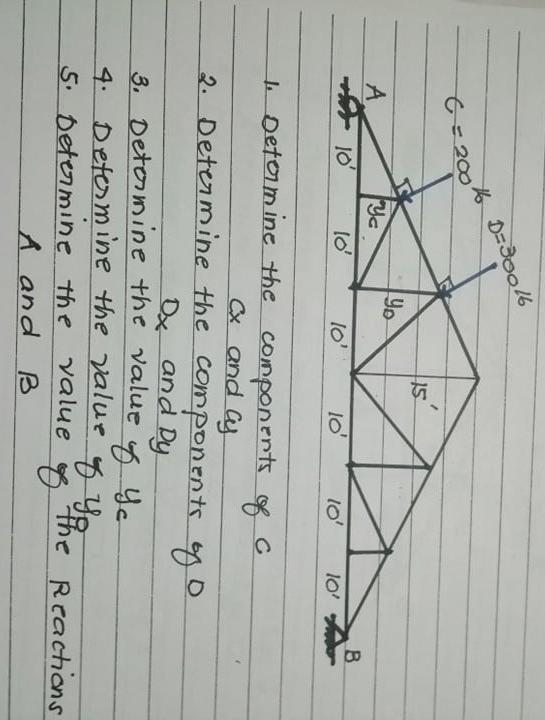 C = 200 lb
D = 300 lb
A
yc
yD
15'
10' 10' 10' 10' 10' 10'
B
1. Determine the components of C
Cx and Cy
2. Determine the components of D
Dx and Dy
3. Determine the value of yc
4. Determine the value of yD
5. Determine the value of the Reactions
A and B